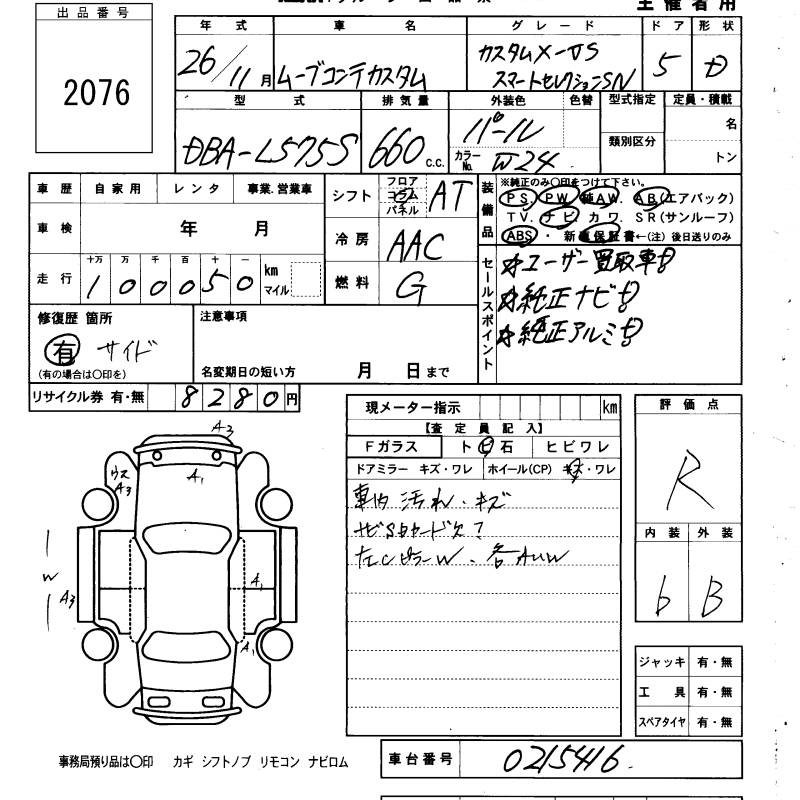 主催者用
出品番号
2076
年式 車名 グレード ドア 形状
26/11月 ムーブコンテカスタム カスタムX-VS スマートセレクションSN 5 D
型式 排気量 外装色 色替 型式指定 定員・積載
類別区分
DBA-L575S 660 c.c. パール カラーNo. W24 名
トン
車歴 自家用 レンタ 事業.営業車
車検 年 月
走行 十万 万 千 百 十 一
1 0 0 0 5 0 km マイル
シフト フロア コラム パネル AT
冷房 AAC
燃料 G
装備品 ※純正のみ○印をつけて下さい。
PS. PW. 純AW. AB(エアバック)
TV. ナビ カワ. SR(サンルーフ)
ABS・ 新車保証書←(注) 後日送りのみ
セールスポイント
☆ユーザー買取車!!
☆純正ナビ!!
☆純正アルミ!!
修復歴 箇所
有 サイド
(有の場合は○印を)
注意事項
名変期日の短い方 月 日まで
リサイクル券 有・無 8280円
現メーター指示 km
【査定員記入】
Fガラス トビ石 ヒビワレ
ドアミラー キズ・ワレ ホイール(CP) キズ・ワレ
車内 汚れ・キズ
ナビSDカード欠?
左CピラーW. 各AUW
評価点
R
内装 外装
b B
ジャッキ 有・無
工具 有・無
スペアタイヤ 有・無
A3
ウス
A3
A1
W
A3
A1
A1
事務局預り品は○印 カギ シフトノブ リモコン ナビロム
車台番号 0215416